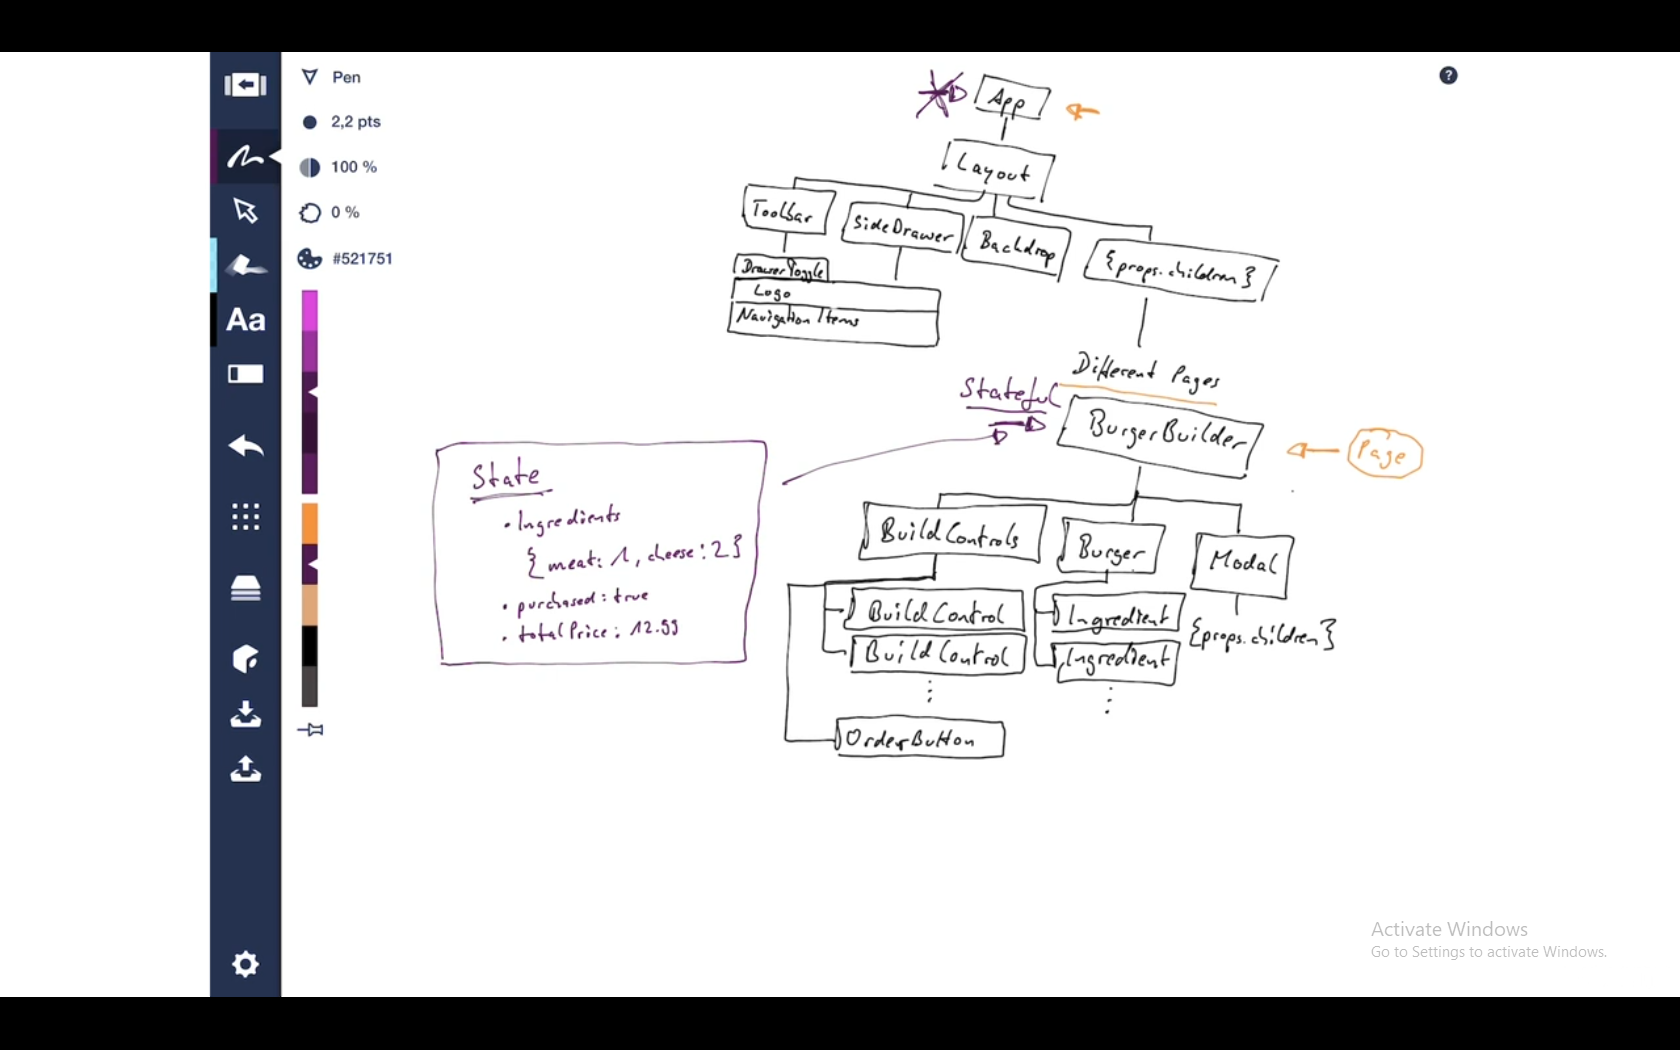 Pen
2,2 pts
100 %
0 %
#521751
Aa
?
App
Layout
Toolbar
SideDrawer
Backdrop
{props.children}
DrawerToggle
Logo
Navigation Items
Different Pages
Stateful
BurgerBuilder
Page
State
• Ingredients
{meat: 1, cheese: 2}
• purchased: true
• totalPrice: 12.99
BuildControls
Burger
Modal
BuildControl
Ingredient
{props.children}
BuildControl
Ingredient
OrderButton
Activate Windows
Go to Settings to activate Windows.